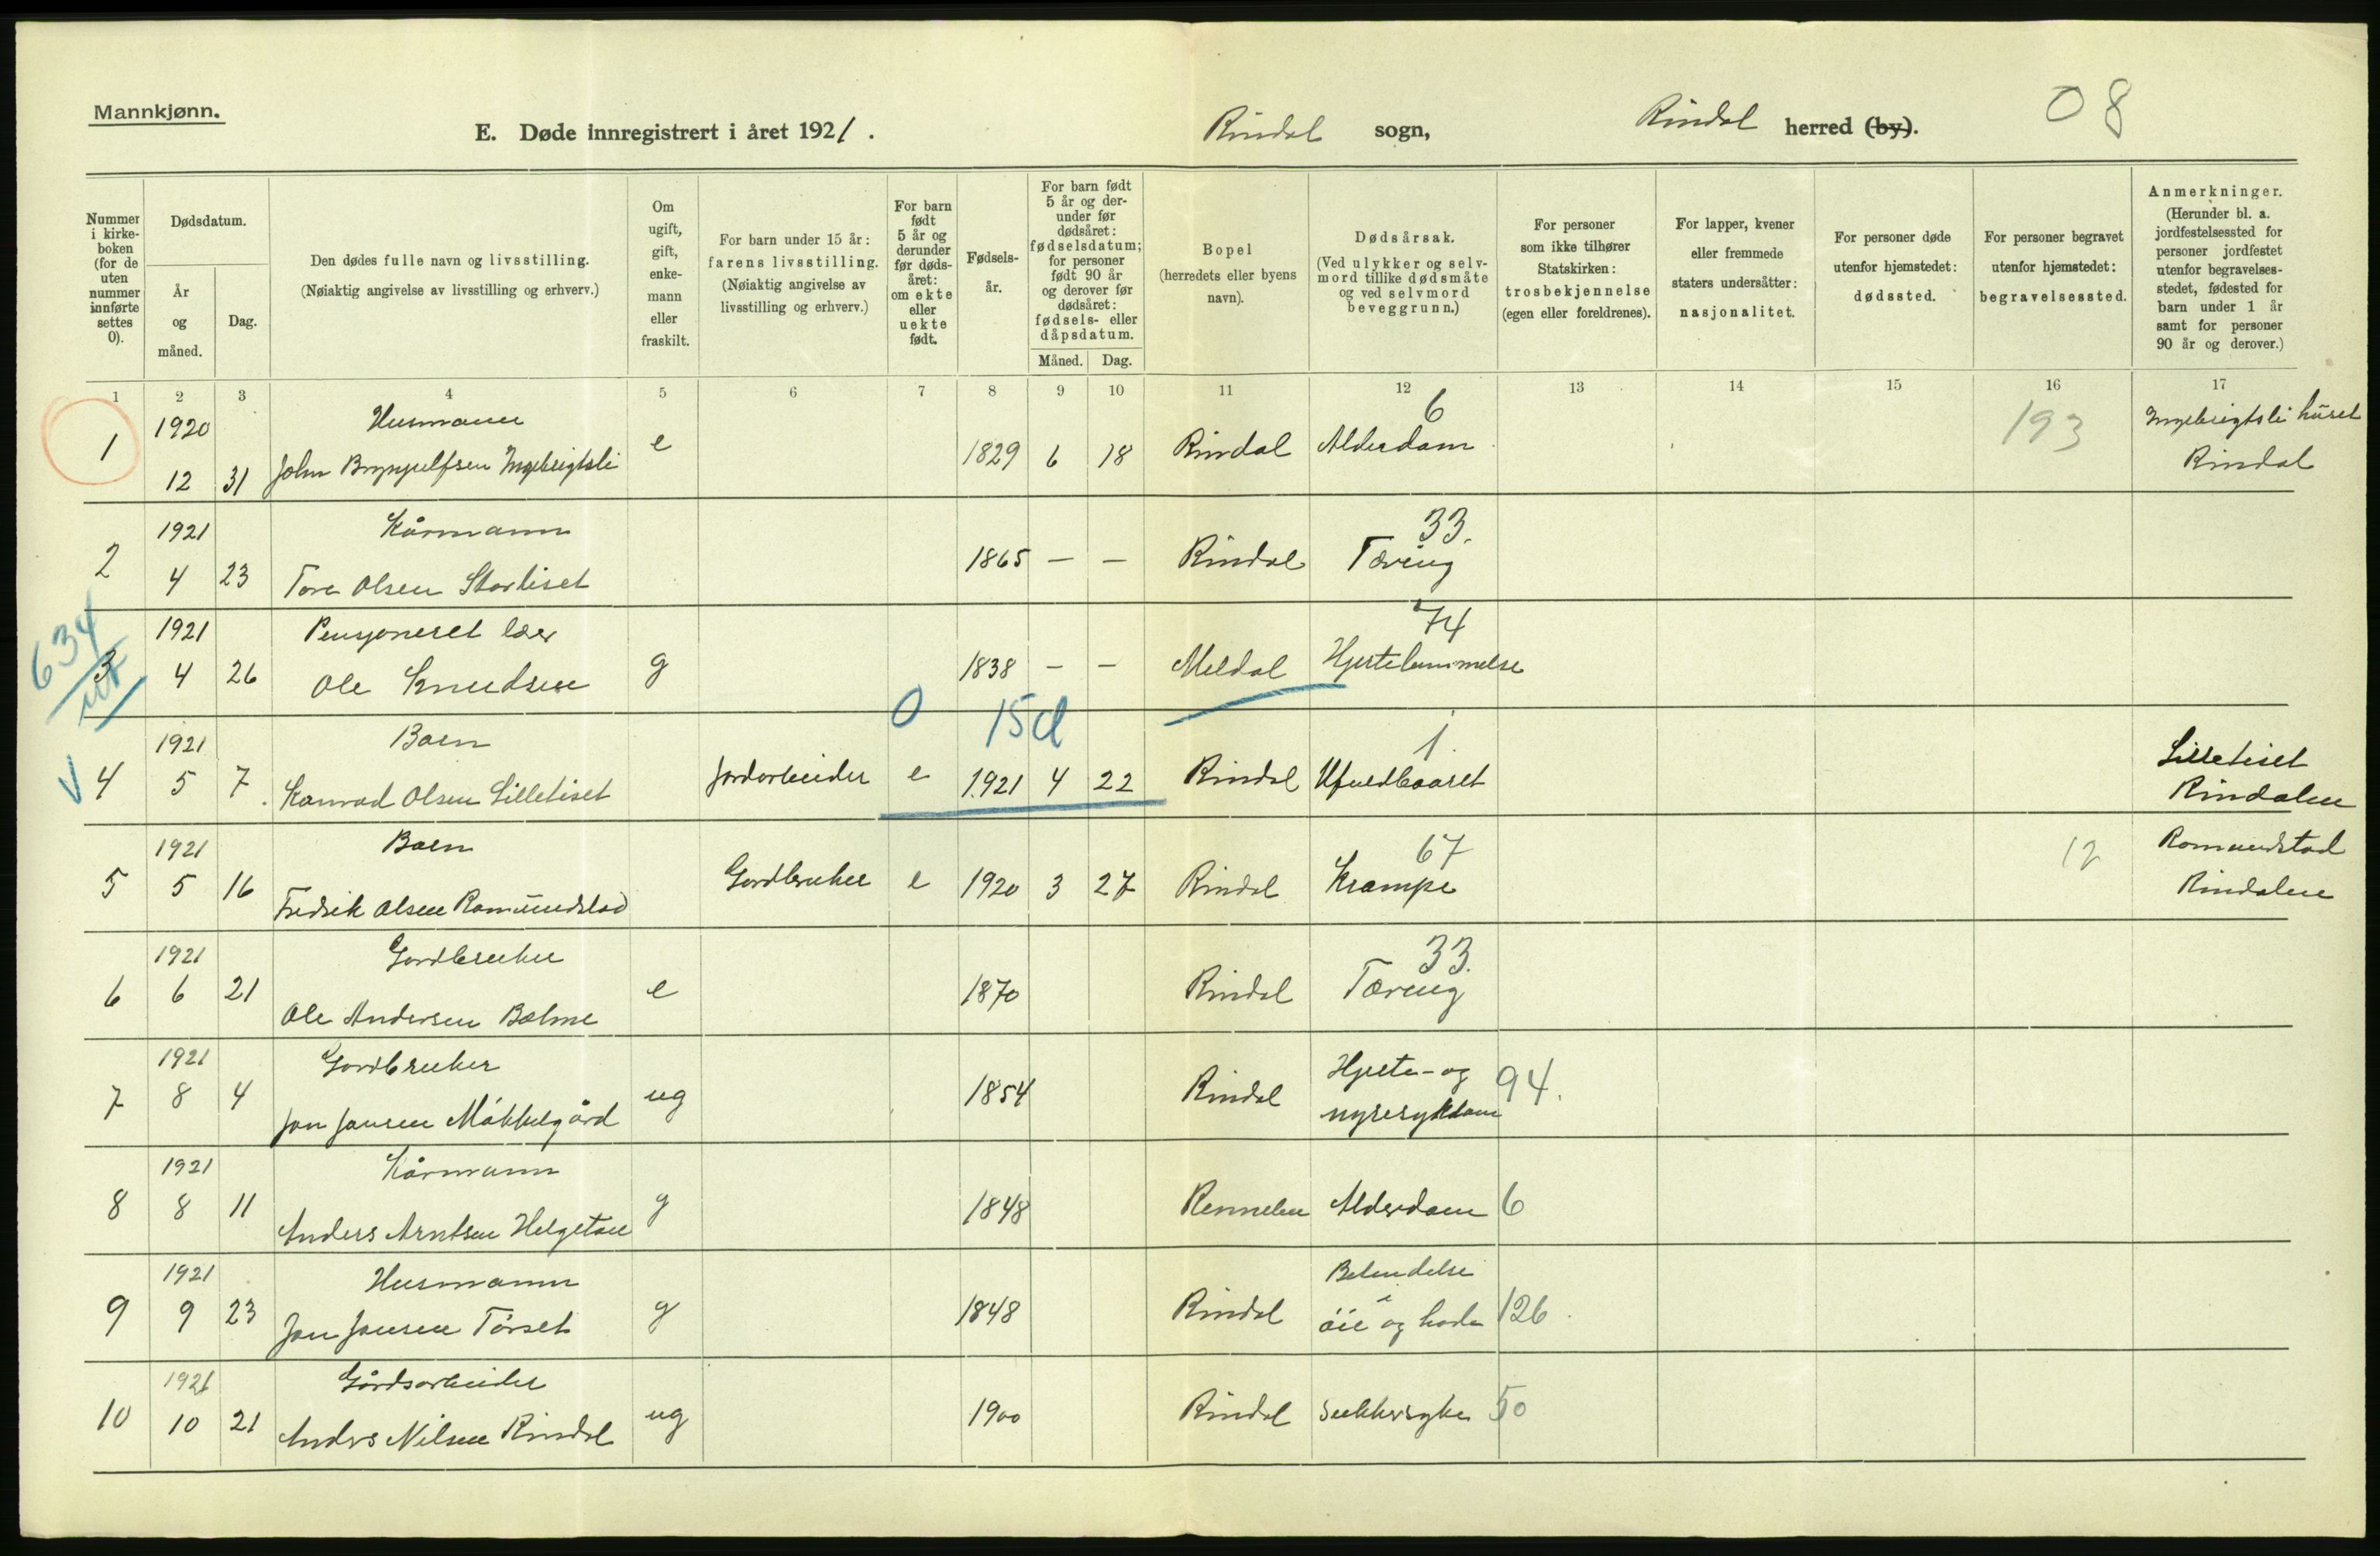 Mannkjønn.
E. Døde innregistrert i året 1921.
Rindal sogn,
Rindal herred (by).
08
Nummer i kirkeboken (for de uten nummer innførte settes 0).
Dødsdatum.
År og måned.
Dag.
Den dødes fulle navn og livsstilling.
(Nøiaktig angivelse av livsstilling og erhverv.)
Om ugift, gift, enkemann eller fraskilt.
For barn under 15 år: farens livsstilling.
(Nøiaktig angivelse av livsstilling og erhverv.)
For barn født 5 år og derunder før dødsåret: om ekte eller uekte født.
Fødselsår.
For barn født 5 år og derunder før dødsåret: fødselsdatum; for personer født 90 år og derover før dødsåret: fødsels- eller dåpsdatum.
Måned. Dag.
Bopel (herredets eller byens navn).
Dødsårsak.
(Ved ulykker og selvmord tillike dødsmåte og ved selvmord beveggrunn.)
For personer som ikke tilhører Statskirken: trosbekjennelse (egen eller foreldrenes).
For lapper, kvener eller fremmede staters undersåtter: nasjonalitet.
For personer døde utenfor hjemstedet: dødssted.
For personer begravet utenfor hjemstedet: begravelsessted.
Anmerkninger.
(Herunder bl. a. jordfestelsessted for personer jordfestet utenfor begravelsesstedet, fødested for barn under 1 år samt for personer 90 år og derover.)
1 2 3 4 5 6 7 8 9 10 11 12 13 14 15 16 17
1920 Husmann 6 Ingebrigtsli huset
1 12 31 John Brynjulfsen Ingebrigtsli e 1829 6 18 Rindal Alderdom 193 Rindal
1921 Kårmann 33.
2 4 23 Tore Olsen Storliset 1865 — — Rindal Tæring
634
1921 Pensjonert lær 74
3 4 26 Ole Knudsen g 1838 — — Meldal Hjertelammelse
0 15d
1921 Barn 1 Lilletiset
4 5 7 Konrad Olsen Lilletiset Jordarbeider e 1921 4 22 Rindal Ufuldbaaret Rindalen
1921 Barn 67 Romundstad
5 5 16 Fredrik Olsen Romundstad Gardbruker e 1920 3 27 Rindal Krampe 12 Rindalen
1921 Gardbruker 33.
6 6 21 Ole Andersen Bolme e 1870 Rindal Tæring
1921 Gardbruker Hjerte- og
7 8 4 Jon Jonsen Møkkelgård ug 1854 Rindal nyresykdom 94.
1921 Kårmann
8 8 11 Anders Arntsen Helgetun g 1848 Alderdom 6
1921 Husmann Betendelse i
9 9 23 Jon Jonsen Tørset g 1848 Rindal øie og hode 126.
1921 Gårdsarbeider
10 10 21 Anders Nilsen Rindal ug 1900 Rindal Sukkersyke 50